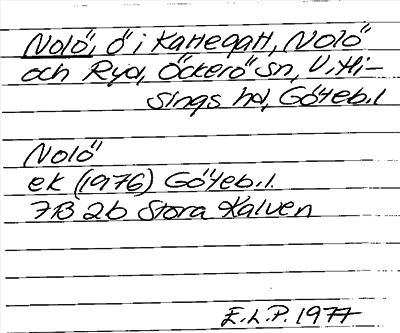 Nolö, ö i Kattegatt, Nolö
och Ryd, Öckerö sn, V. Hi-
sings hd, Göteb.l
Nolö
ek (1976) Göteb.l.
7B 2b Stora Kalven
E.L.P. 1977